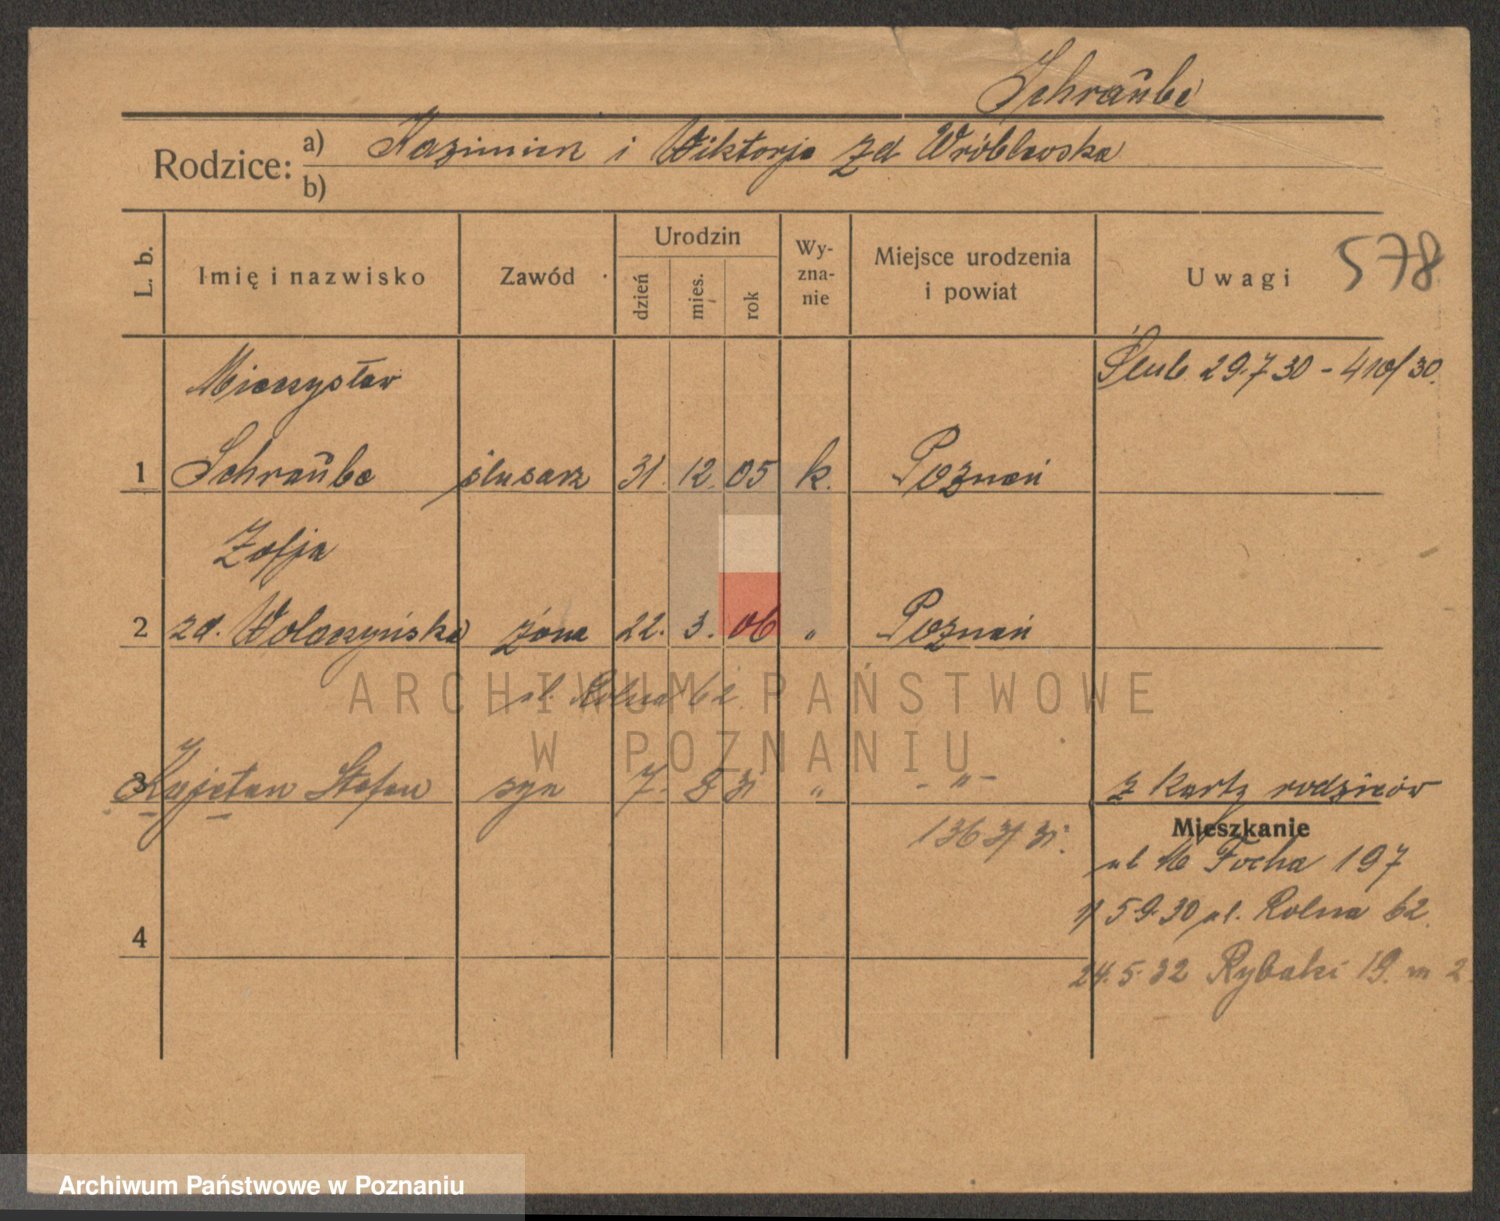 Schraübe
Rodzice: a) Kazimierz i Wiktorja zd Wróblewska
b)
L. b. Imię i nazwisko Zawód Urodzin dzień mies. rok Wy-zna-nie Miejsce urodzenia i powiat Uwagi 578
Mieczysław Ślub 29.7 30 - 410/30.
1 Schraübe ślusarz 31. 12. 05 k. Poznań
Zofja
2 zd. Wolaczyńska żona 22. 3. 06 " Poznań
ul. Rolna 62.
3 Kajetan Stefan syn 7. 8 31 " - " - z karty rodziców
1363/31.
Mieszkanie
ul M Focha 197
1/ 5.9.30 ul. Rolna 62.
4
24.5.32 Rybaki 19. m 2
ARCHIWUM PAŃSTWOWE
W POZNANIU
Archiwum Państwowe w Poznaniu